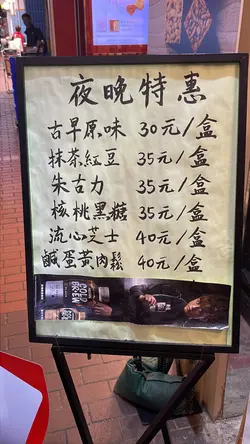 夜晚特惠
古早原味 30元/盒
抹茶紅豆 35元/盒
朱古力 35元/盒
核桃黑糖 35元/盒
流心芝士 40元/盒
鹹蛋黃肉鬆 40元/盒
COLD
BREW